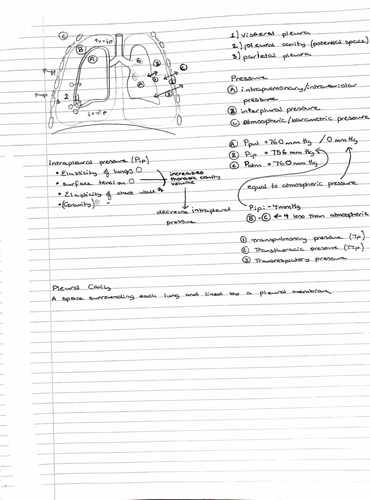 1) visceral pleura
2) pleural cavity (potential space)
3) parietal pleura
Pressure
A intrapulmonary/intraalveolar
pressure
B interpleural pressure
C atmospheric/barometric pressure
A Ppul = 760 mm Hg / 0 mm Hg
B Pip = 756 mm Hg
C Patm = 760 mm Hg
equal to atmospheric pressure
Pip: -4 mmHg
B - C ← 4 less than atmospheric
1 Transpulmonary pressure (Tp)
2 Transthoracic pressure
3 Transrespiratory pressure
Intrapleural pressure (Pip)
• Elasticity of lungs
• Surface tension
• Elasticity of chest wall
• (Gravity)
increased
thoracic cavity
volume
decrease intrapleural
pressure
Pleural Cavity
A space surrounding each lung and lined by a pleural membrane